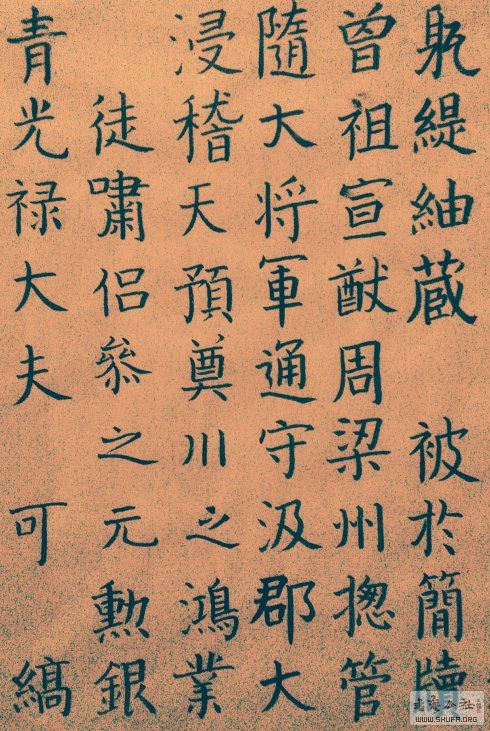 緹紬蔵 被於簡牘
曾祖宣猷周梁州揔管
隨大将軍通守汲郡大
浸稽天預奠川之鴻業
徒嘯侶叅之元勲銀
青光禄大夫 可 縞
WWW.SHUFA.ORG